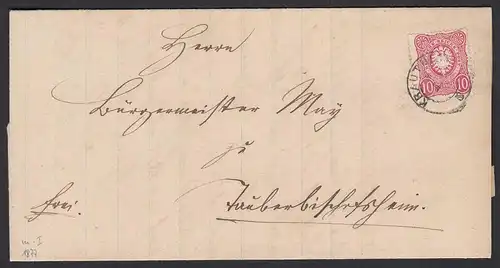 Herrn
KRAUTHEI
10 10
Bürgermeister May
zu
frei.
Tauberbischofsheim.
1877